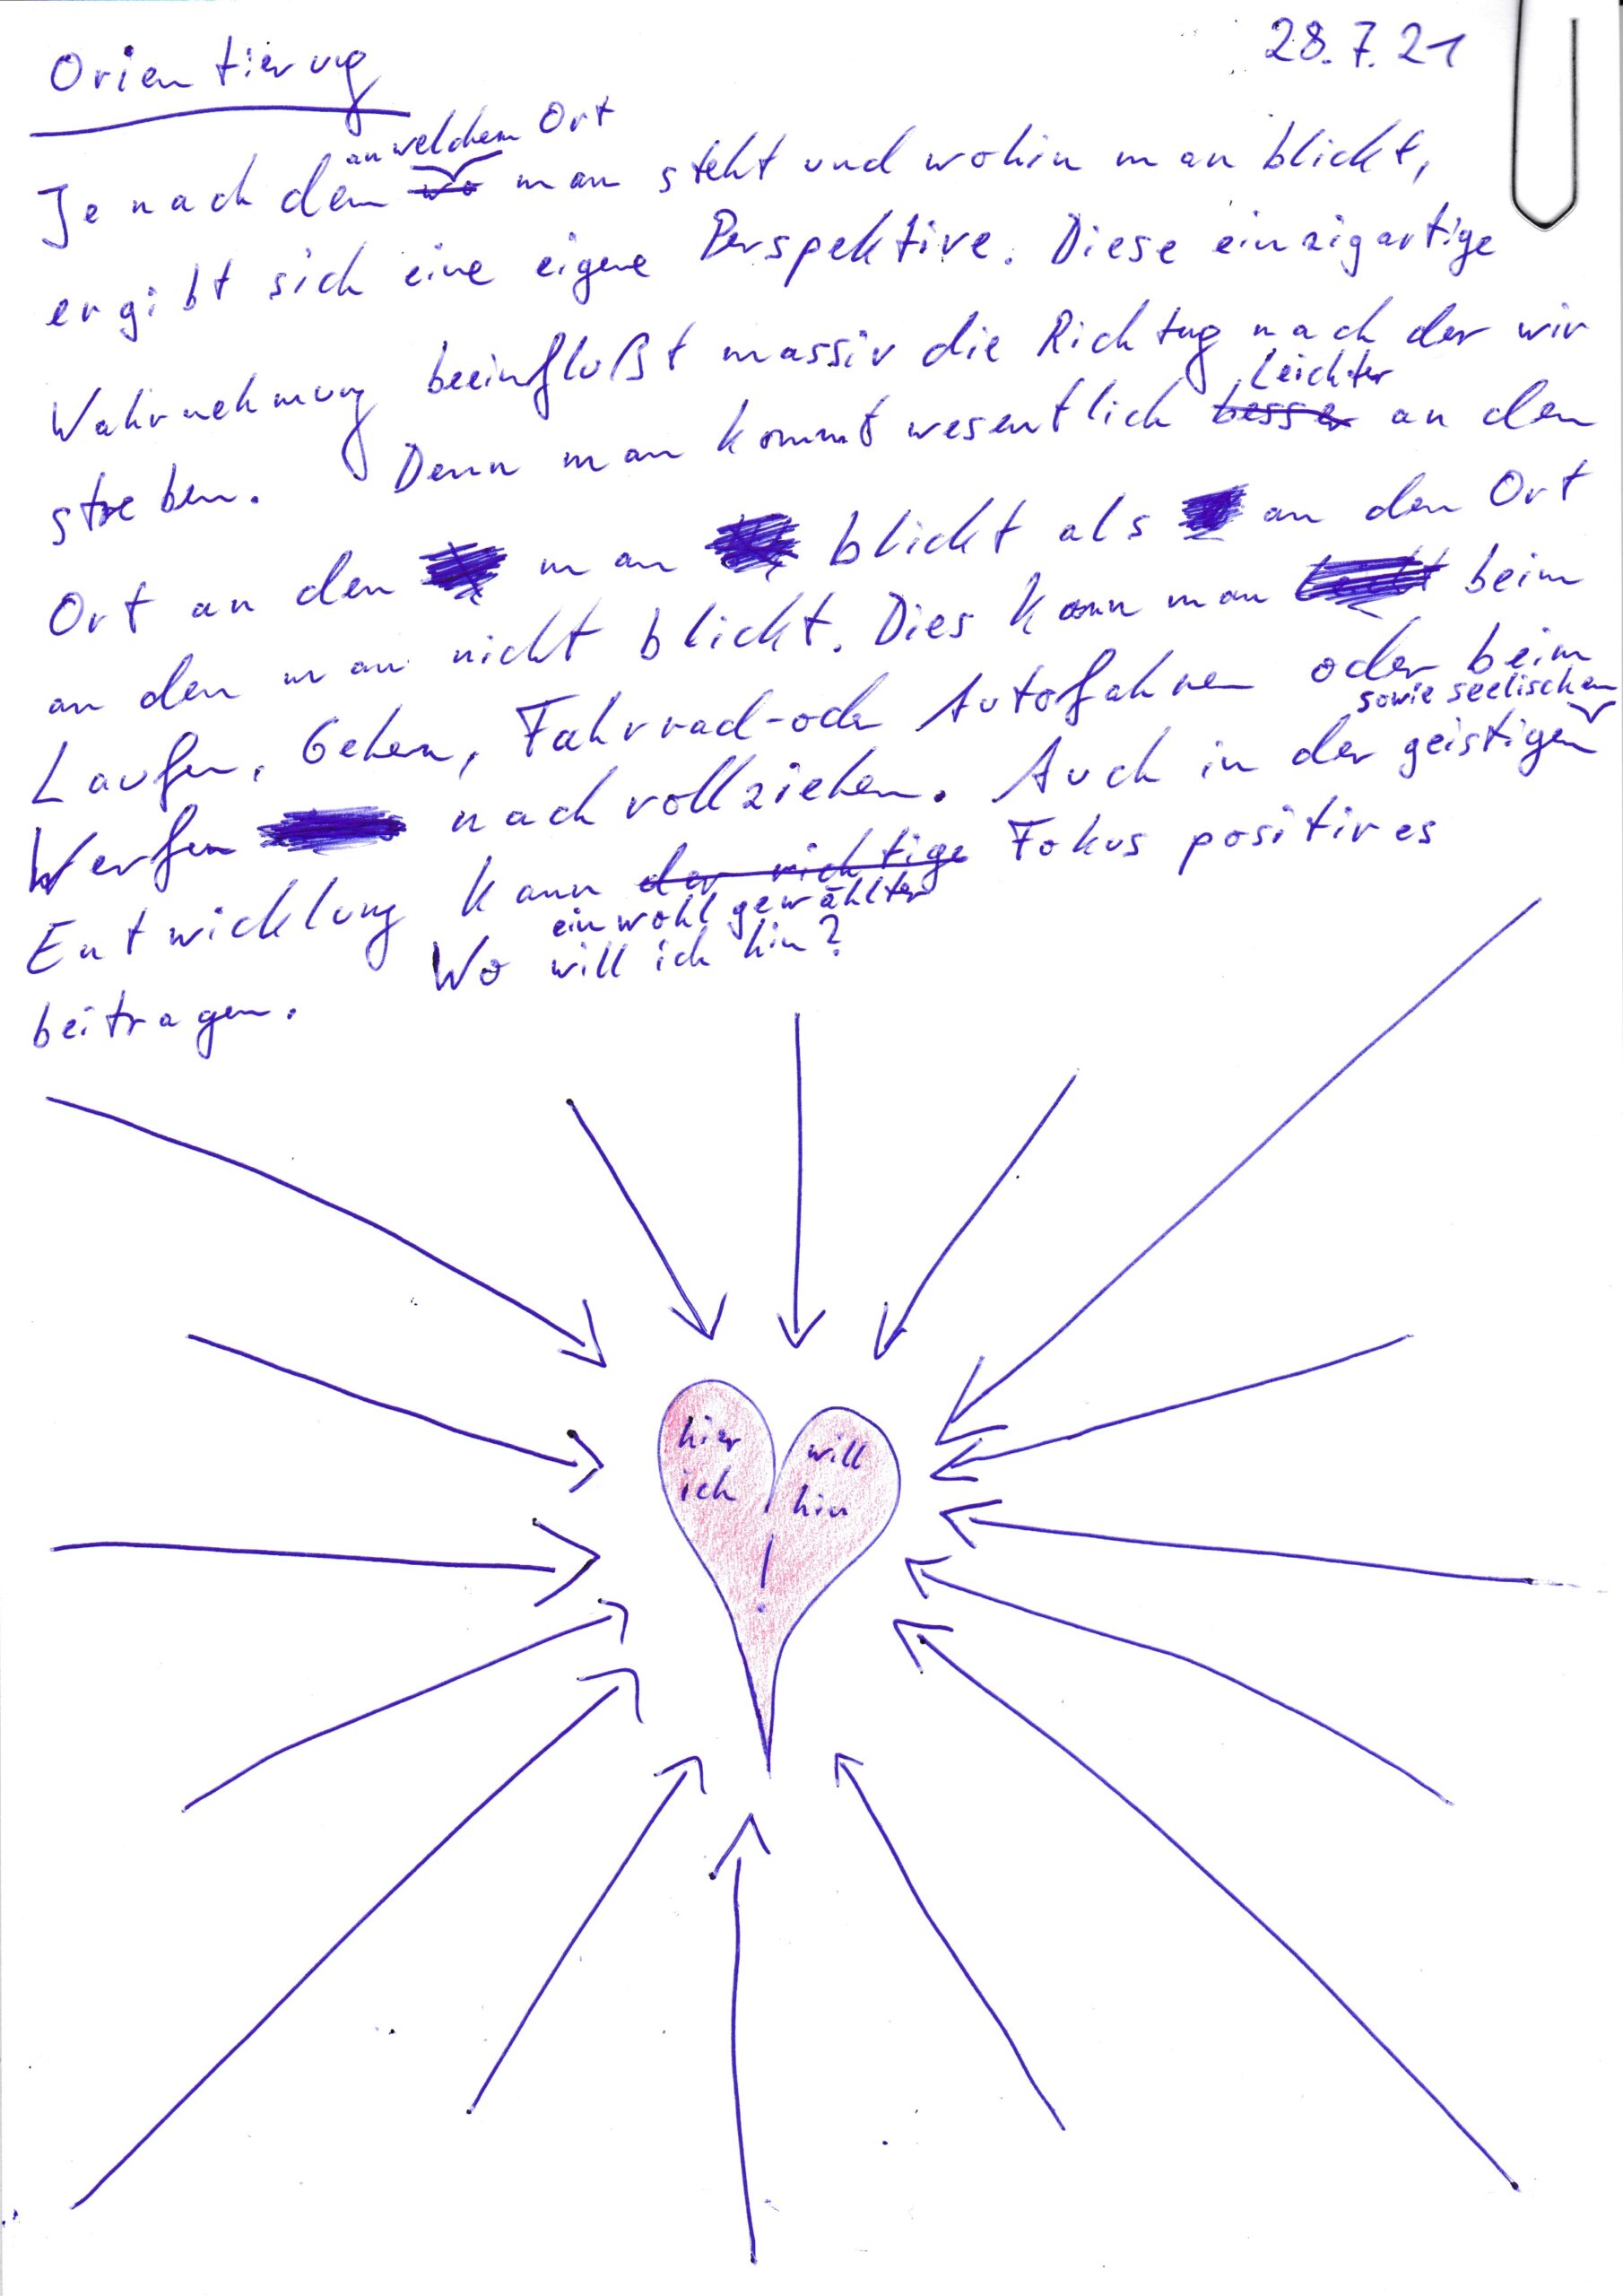 Orientierung
28.7.21
an welchem Ort
Je nach dem wo man steht und wohin man blickt,
ergibt sich eine eigene Perspektive. Diese einzigartige
Wahrnehmung beeinflußt massiv die Richtung nach der wir
leichter
streben. Denn man kommt wesentlich besser an den
Ort an den man blickt als an den Ort
an den man nicht blickt. Dies kann man beim
Laufen, Gehen, Fahrrad-oder Autofahren oder beim
sowie seelischen
Werfen nachvollziehen. Auch in der geistigen
Entwicklung kann der richtige Fokus positives
ein wohl gewählter
beitragen. Wo will ich hin?
hier will
ich hin
!